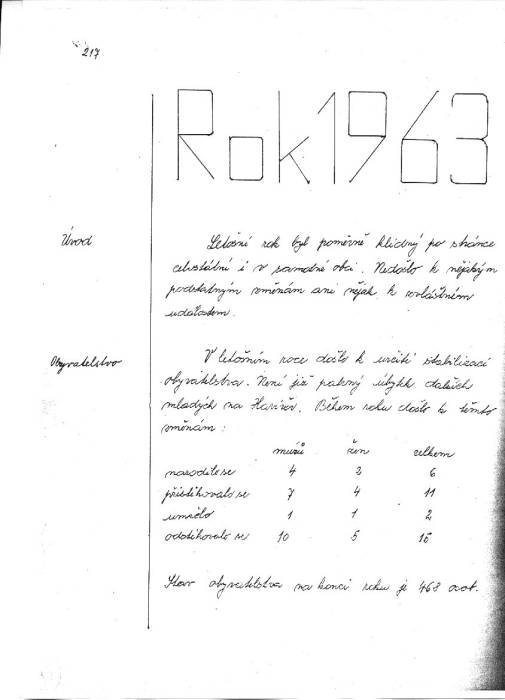 217
Rok 1963
Úvod
Letošní rok byl poměrně klidný po stránce
celostátní i v samotné obci. Nedošlo k nějakým
podstatným změnám ani nějak k zvláštním
událostem.
Obyvatelstvo
V letošním roce došlo k určité stabilizaci
obyvatelstva. Není již patrný úbytek dalších
mladých na Havířov. Během roku došlo k těmto
změnám:
mužů žen celkem
narodilo se 4 2 6
přistěhovalo se 7 4 11
umřelo 1 1 2
odstěhovalo se 10 5 15
Stav obyvatelstva na konci roku je 468 osob.